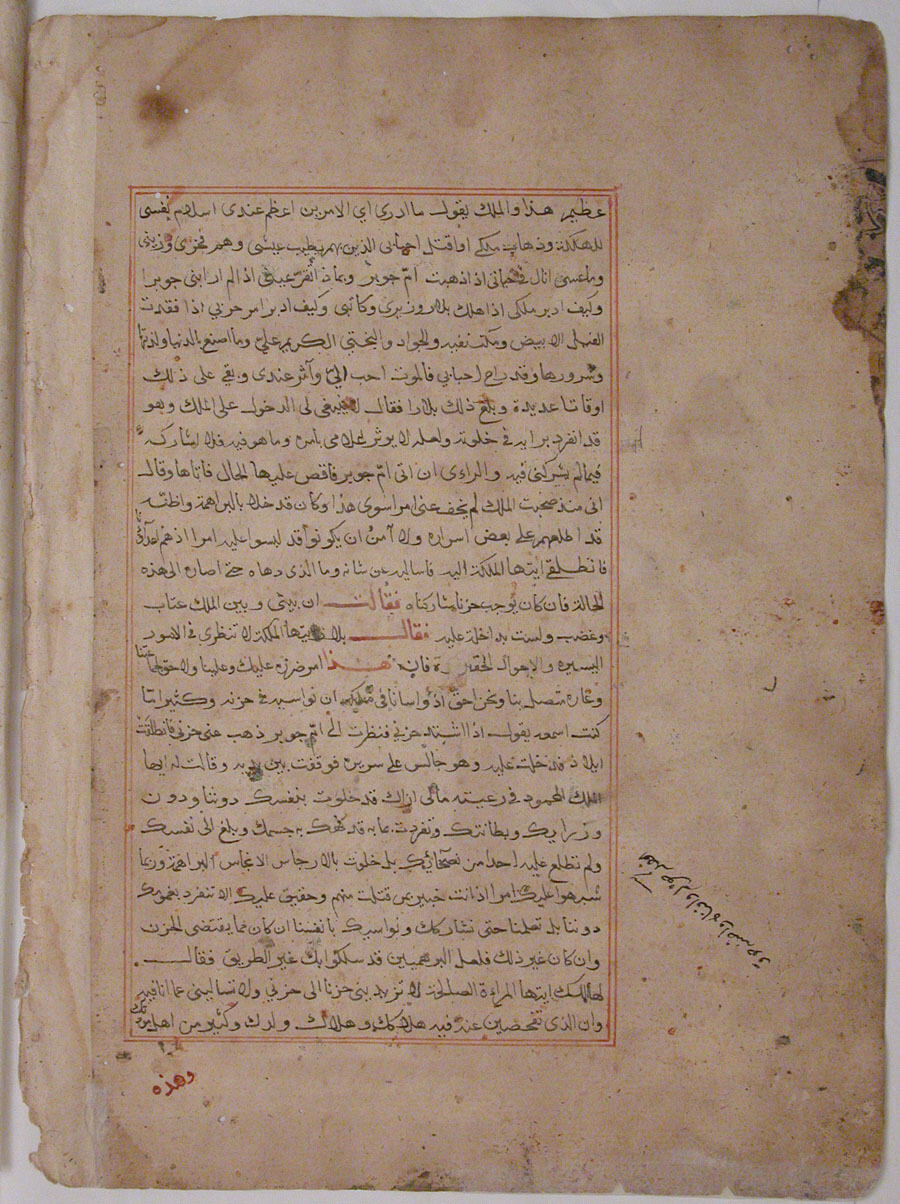 عظيم هذا والملك يقول ما ادرى اي الامرين اعظم عندى اسلام نفسى
للهلكة وذهاب ملكى او اقتل احبابى الذين بهم يطيب عيشى وهم فخرى وزينى
وما عسى انال فى حياتى اذا ذهبت امّ جوبر وبماذا تقرّ عينى اذا لم ار ابنى جوبرا
وكيف ادبر ملكى اذا هلك بلار وزيرى وكاتبى وكيف ادبر امر حزنى اذا فقدت
الفيل الابيض ومكث نفيه والجواد والبختى الكريم علىّ وما اصنع بالدنيا ولذتها
وسرورها وقد راح احبابى فالموت احب الىّ وآثر عندى وبقى على ذلك
اوقاتا عديدة وبلغ ذلك بلارا فقال لا ينبغى لى الدخول على الملك وهو
قد انفرد برايه فى خلوته ولعله لا يوثر كلامى بامره وما هو فيه فلا اشاركه
فيما لم يشركنى فيه والراءى ان اتى امّ جوبر فاقص عليها الحال فاتاها وقال
انى منذ صحبت الملك لم يخف عنى امرا سوى هذا وكان قد خلا بالبراهمة واظنه
قد اطلعهم على بعض اسراره ولا آمن ان يكونوا قد لبسوا عليه امرا اذ هم اعدآؤه
فانطلقى ايتها الملكة اليه فاساليه عن شانه وما الذى دهاه حتى اصاره الى هذه
الحالة فان كان يوجب حزنا شاركناه فقالت ان بينى وبين الملك عتاب
وغضب ولست بداخلة عليه فقال بلاذ ايتها الملكة لا تنظرى فى الامور
اليسيره والاحوال الحقيرة فان هذا امر ضرره عليك وعلينا ولاحق
وعاره متصل بنا ونحن احق اذ واسانا فى ملكه ان نواسيه فى حزنه وكثيرا ما
كنت اسمعه يقول اذا اشتد حزنى فنظرت الى امّ جوبر ذهب عنى حزنى فانطلقت
ايلاذ فدخلت عليه وهو جالس على سريره فوقفت بين يديه وقالت له ايها
الملك المحمود فى رعيته مالى اراك قد خلوت بنفسك دوننا ودون
وزرايك وبطانتك وتفردت بما به قد نهك به جسمك وبلغ الى نفسك
ولم تطلع عليه احدا من نصحائيك بل خلوت بالارجاس الانجاس البراهمة وربما
شبهوا عليك امرا اذ انت خبير بمن قتلت منهم وحقيق عليك الا تنفرد بغمومك
دوننا بل تعلمنا حتى نشاركك ونواسيك بانفسنا ان كان مما يقتضى الحزن
وان كان غير ذلك فلعل البرهميين قد سلكوا بك غير الطريق فقال
لها الملك ايتها المراءة الصالحة لا تزيدينى حزنا الى حزنى ولا تسالينى عما انا فيه
وان الذى تفحصين عنه فيه هلاكك وهلاك ولدك وكثير من اهل مودتك
وهذه